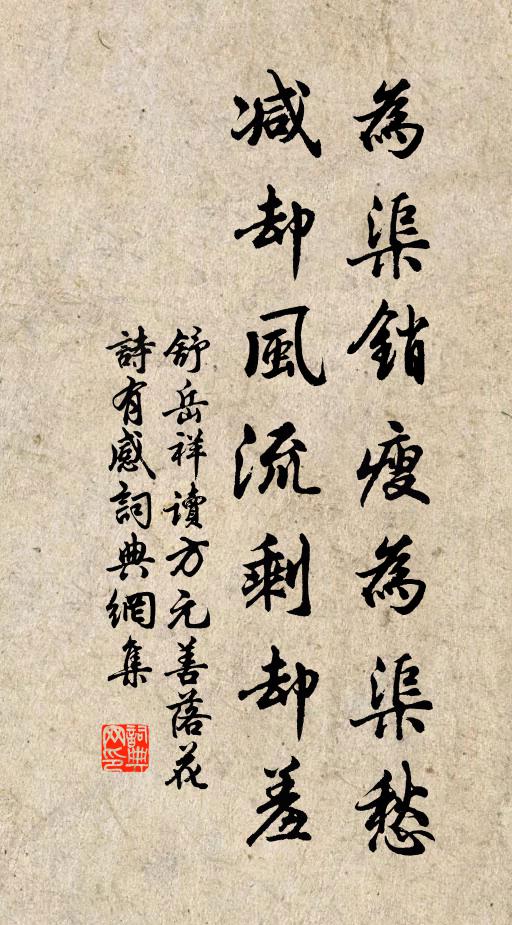 為渠銷瘦為渠愁
減却風流剩却羞
舒岳祥讀方元善落花
詩有感詞典網集
詞典
网印